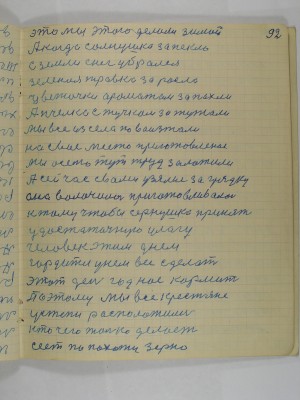 92
это мы этого делали зимой
А когда солнушко запекло
с земли снег убрался
зеленая травка заросла
цветочки ароматом запахли
А пчелки с
мы все из села повыехали
на свое место приготовленое
мы осеню тут труд заложили
А сейчас свами узялис за грядку
она волочится приготовливалас
к тому чтобы зернушко принят
удостаточную улагу
человек этим днем
гордится унем все сделат
этот ден год нас кормит
Поэтому мы все крестяне
уступи расположили
кто чего только делает
сеет по пахоти зерно